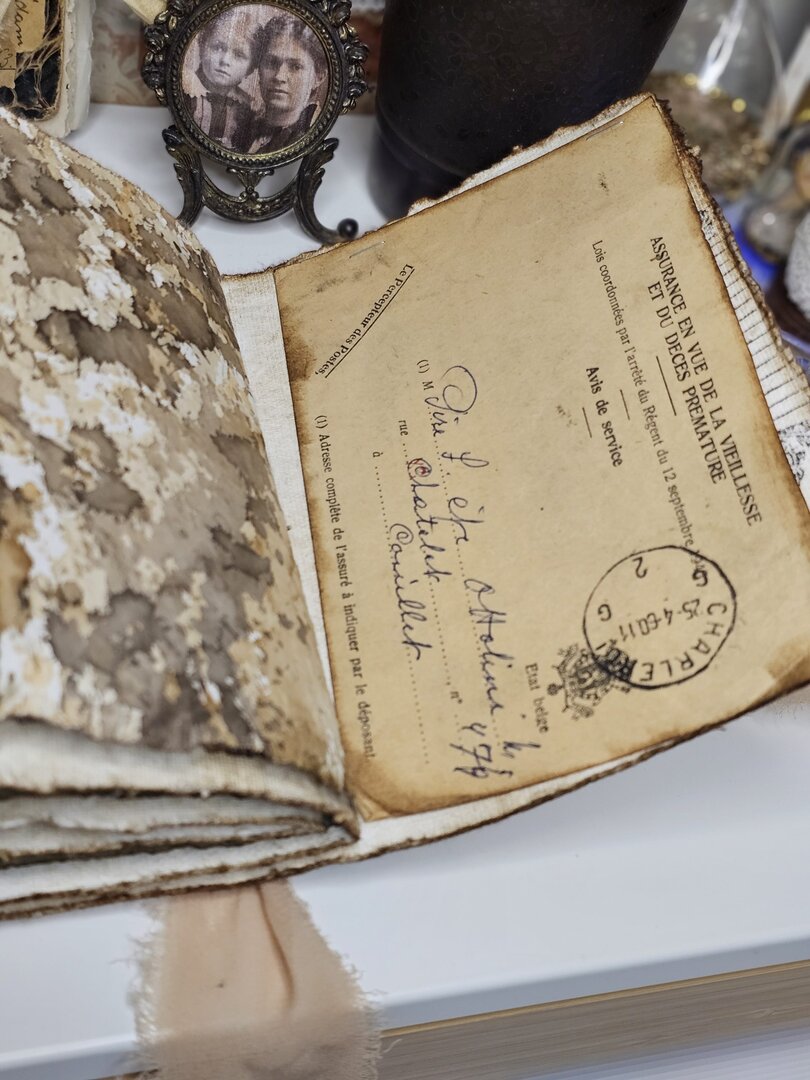 ASSURANCE EN VUE DE LA VIEILLESSE
ET DU DECES PREMATURE
Lois coordonnées par l'arrêté du Régent du 12 septembre
Avis de service
Etat belge
CHARLE
Le Percepteur des Postes,
(1) M
rue Chatelet n°
à Couillet
(1) Adresse complète de l'assuré à indiquer par le déposant.